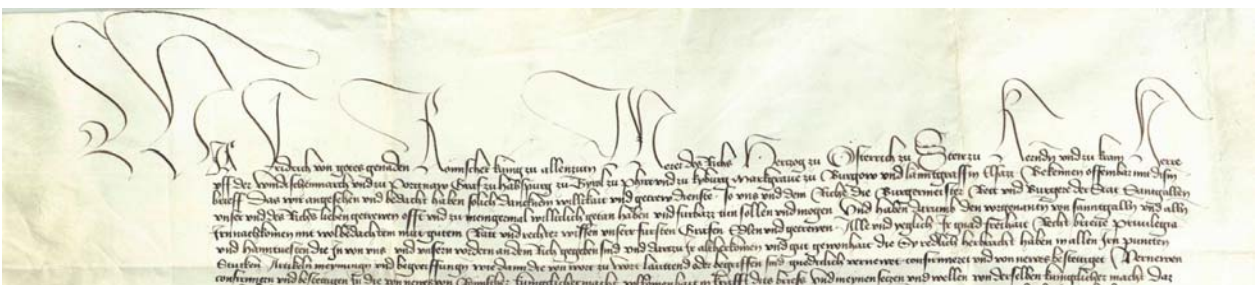 Wir Fridrich von gotes genaden Romischer kunig zu allenczeiten Merer des Richs Herczog zu Österrich zu Steir zu Kernden und zu krain Herre
uff der Windischenmarch und zu Portnaw Graf zu Habspurg zu Tyrol zu Phirt und zu kyburg Markgrave zu Burgow und lanntgraff in Elsazz Bekennen offembar mit disem
brieff Das wir angesehen und bedacht haben solich dancknem willikait und getrew dienste So uns und dem Riche die Burgermeister Rett und Burger der Stat Sanntgallen
unser und des Richs lieben getrewen offt und zu menigemal willicleich getan haben und furbazz tun sollen und mogen Und haben darumb den vorgenanten von sanntgallen und allen
Iren nachkomen mit wolbedachtem mut gutem Rate und rechter wissen unser fursten Grafen Edlen und getrewen Alle und yeglich Ir gnad freihait Recht brieve privilegia
und hanntvesten die In von uns und unsern vordern an dem Rich gegeben sind und darczu Ir altherkomen und gut gewonhait die Sy redlich herbracht haben in allen Iren puncten
Stucken Artikeln meynungen und begreiffungen wie dann die von wort zu wort lautend oder begriffen sind gnediclich vernewet confirmiert und von newes bestettiget Vernewen
confirmiren und bestetten In die von newes von Romischer kuniglicher macht volkomenhait in krafft dis briefs und meynen seczen und wellen von derselben kuniglicher macht Daz